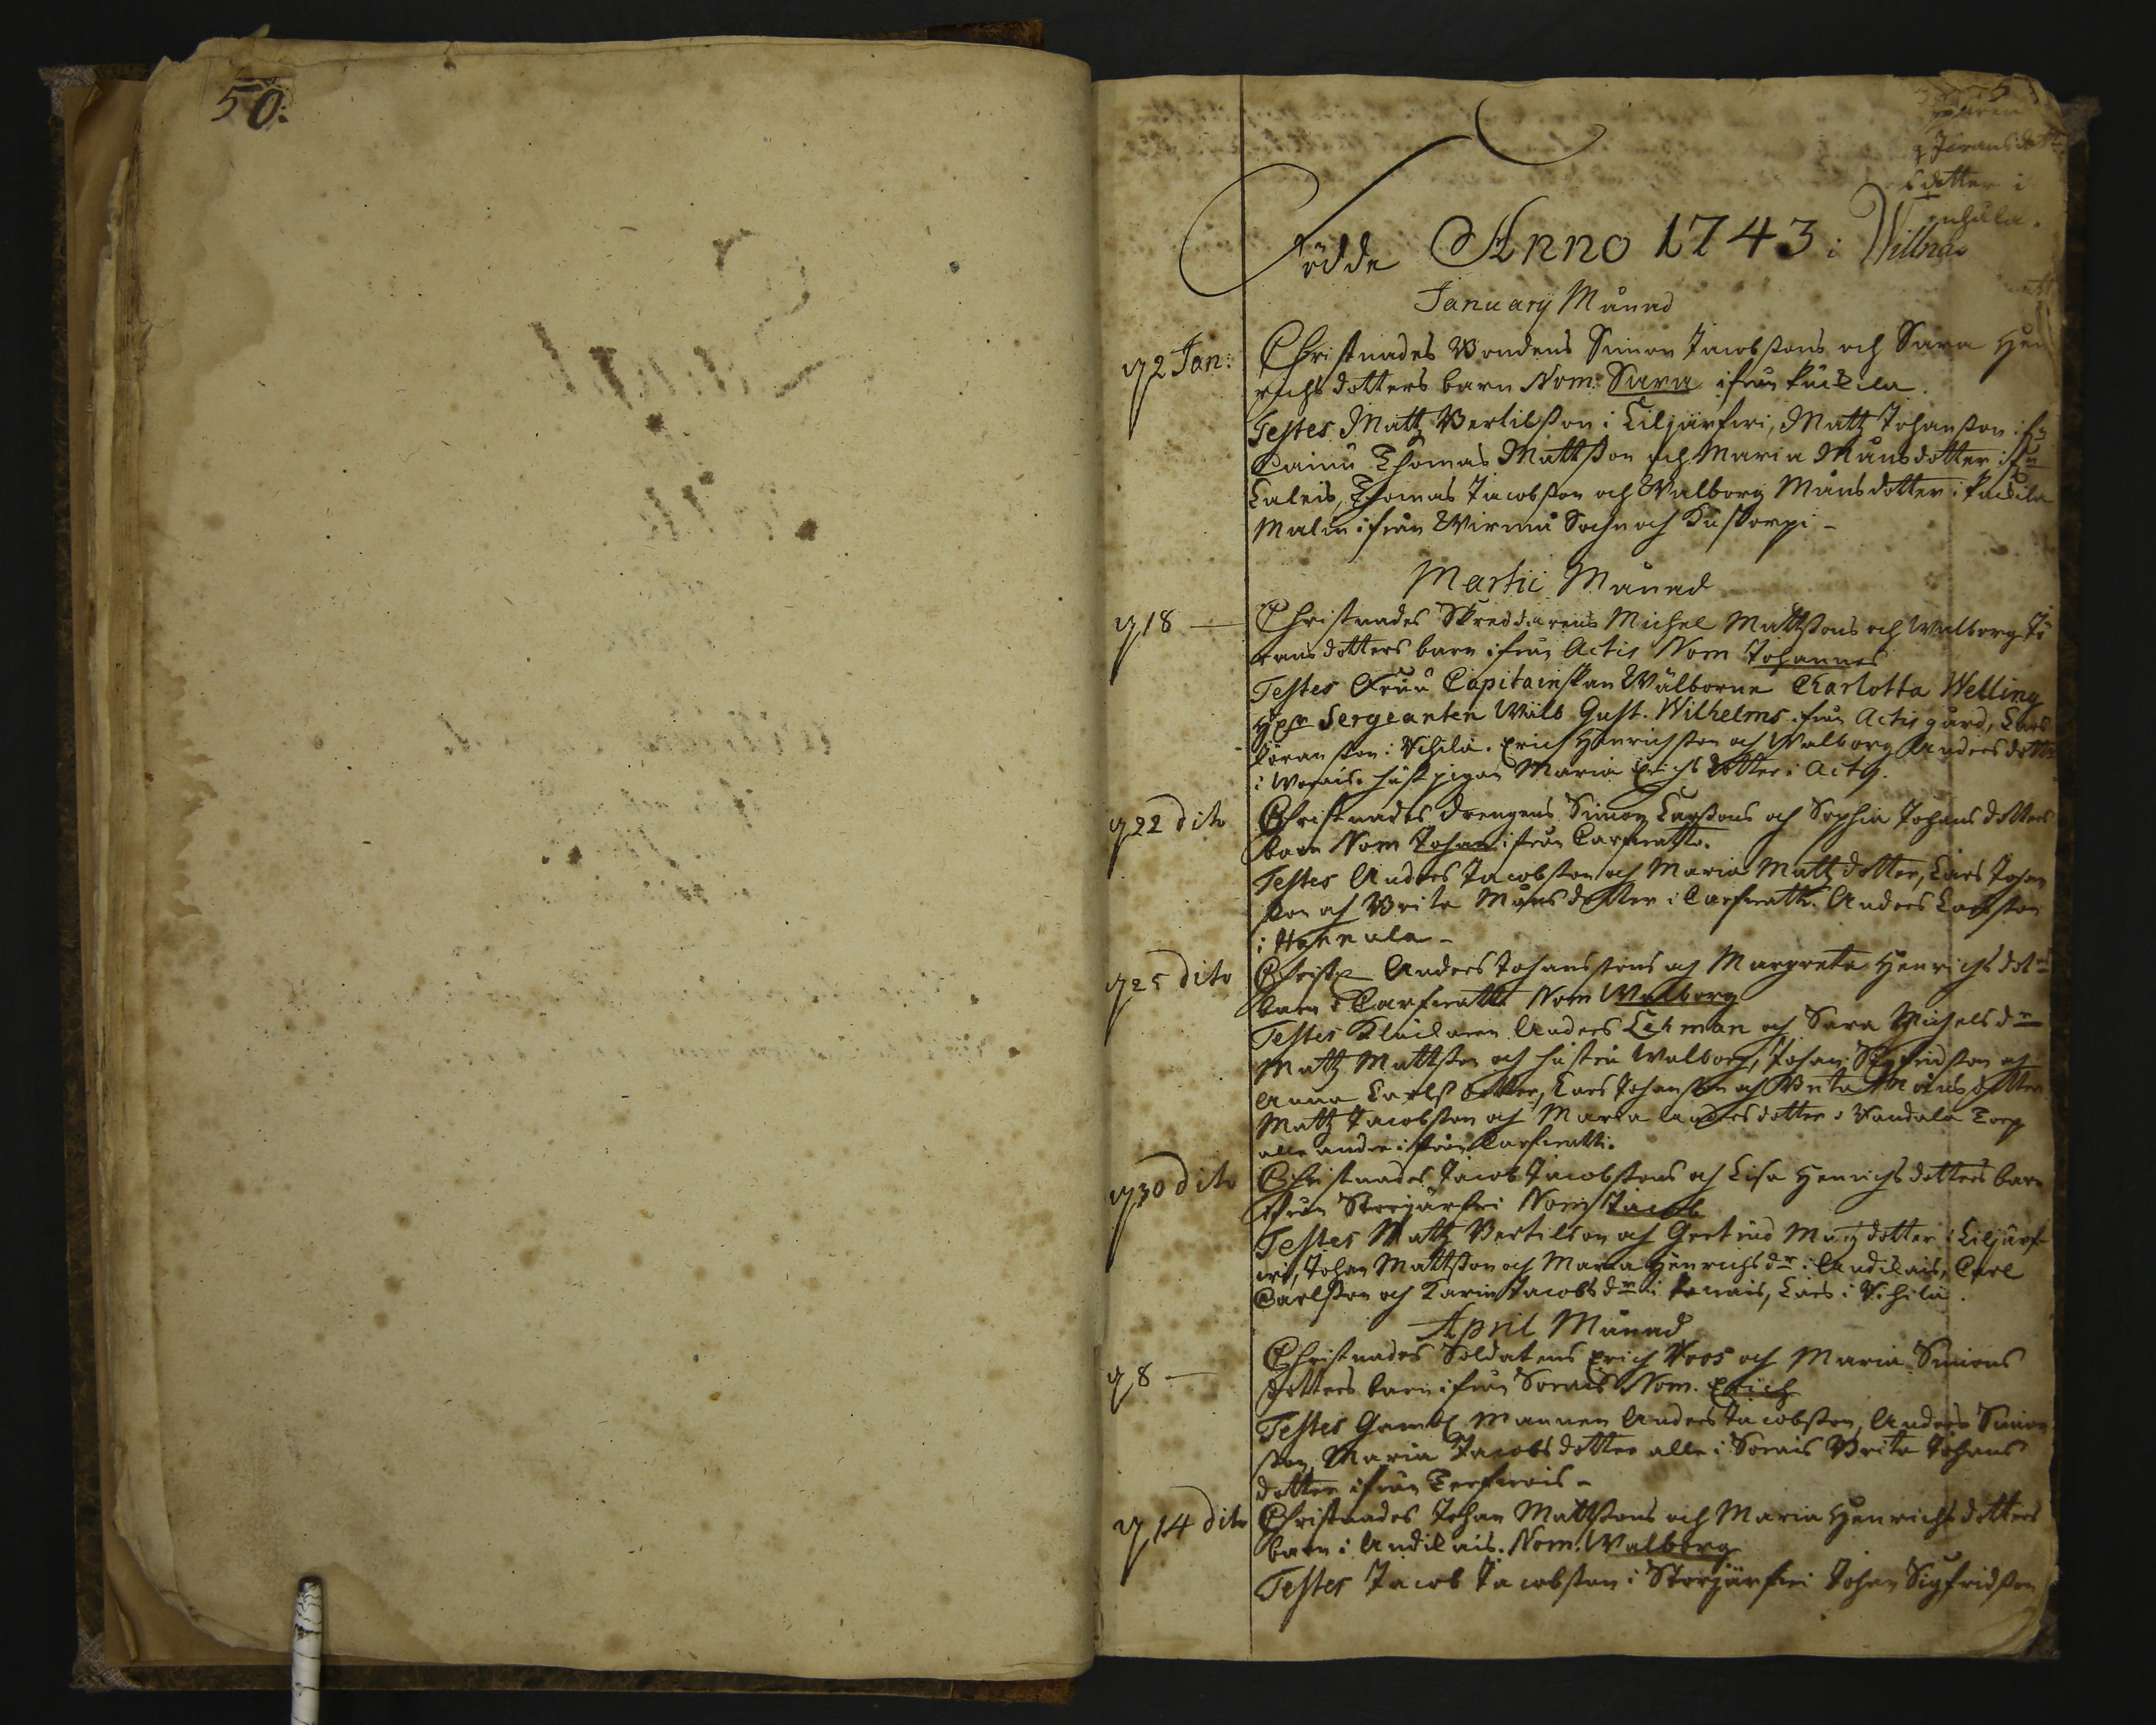 50:
Födde Anno 1743 i Willnäs
January Månad
d 2 Jan: Christnades Bondens Simon Jacobssons och Sara Hen
richsdotters barn Nom: Sara ifrån
Testes Matz Bertilsson i Liljärfwi, Matz Johansson
Cainu Thomas Mattsson och Maria Månsdotter ifrn
Laleis, Thomas Jacobsson och Walborg Månsdotter i
Malin ifrån Wirmå Sochn och
Martii Månad
d 18 — Christnades Skreddarens Michel Mattssons och Walborg Jö
ransdotters barn ifrån Actis Nom Johannes
Testes Fruu Capitainskan Wälborne Charlotta Welling
Sergeanten Wälb Gust. Wilhelms ifrån Actis gård, Lars
Jöransson i Vihila. Erich Henrichsson och Walborg Andersdotter
i pigan Maria Erichsdotter i Actis.
d 22 dito Christnades Drengens Simon Larssons och Sophia Johansdotters
barn Nom Johan ifrån Carfwatti.
Testes Anders Jacobsson och Maria Matzdotter, Lars Johan
sson och Brita Månsdotter i Carfwatti. Anders Larsson
i Hannula –
d 25 dito Christn Anders Johanssons och Margreta Henrichsdots
barn i Carfwatti Nom Walborg
Testes Kläckaren Anders Lehman och Sara Michelsdr
Matz Mattsson och hustru Walborg, Johan Sigfridsson och
Anna Carlsdotter, Lars Johansson och Brita Månsdotter
Matz Jacobsson och Maria Andersdotter i Torp
alla andre ifrån Carfwatti.
d 30 dito Christnades Jacob Jacobssons och Lisa Henrichsdotters barn
ifrån Storjärfwi Nom Jacob
Testes Matz Bertilson och Gertrud Matzdotter i Liljärf
wi, Johan Mattsson och Maria Henrichsdr i Andilais, Carl
Carlsson och Karin Jacobsdr i Lars i Vihila.
April Månad
d 8 — Christnades Soldatens Erich Roos och Maria Simons
dotters barn ifrån Sorais Nom. Erich
Testes Gambl Mannen Anders Jacobsson, Anders Simon
sson, Maria Jacobsdotter alla i Sorais Brita Johans
dotter ifrån
d 14 dito Christnades Johan Mattssons och Maria Henrichsdotters
barn i Andilais. Nom: Walborg
Testes Jacob Jacobsson i Storjärfwi Johan Sigfridsson